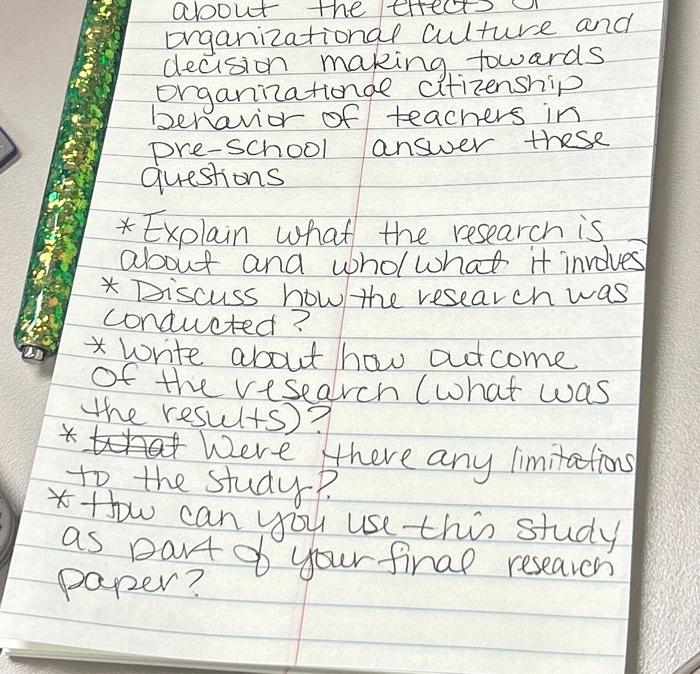 about the effects of
organizational culture and
decision making towards
organizational citizenship
behavior of teachers in
pre-school answer these
questions
* Explain what the research is
about and who/what it involves
* Discuss how the research was
conducted?
* Write about how outcome
of the research (what was
the results)?
* what Were there any limitations
to the study?
* How can you use this study
as part of your final research
paper?